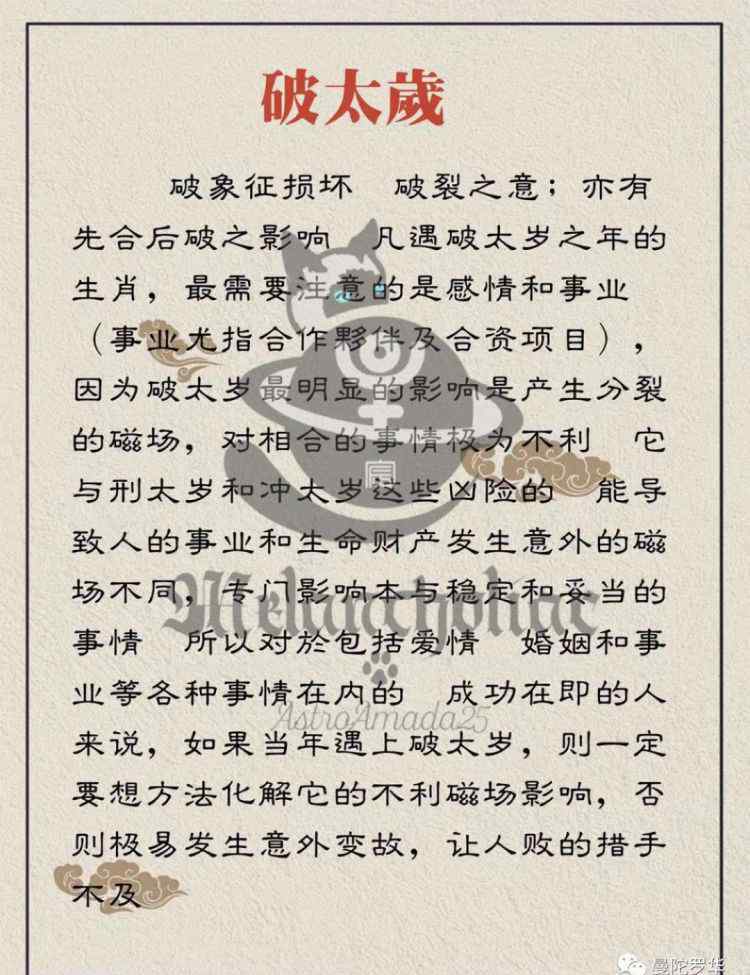 破太歲
破象征损坏　破裂之意；亦有
先合后破之影响　凡遇破太岁之年的
生肖，最需要注意的是感情和事业
（事业尤指合作夥伴及合资项目），
因为破太岁最明显的影响是产生分裂
的磁场，对相合的事情极为不利　它
与刑太岁和冲太岁这些凶险的　能导
致人的事业和生命财产发生意外的磁
场不同，专门影响本与稳定和妥当的
事情　所以对於包括爱情　婚姻和事
业等各种事情在内的　成功在即的人
来说，如果当年遇上破太岁，则一定
要想方法化解它的不利磁场影响，否
则极易发生意外变故，让人败的措手
不及
AstroAmada25
曼陀罗华